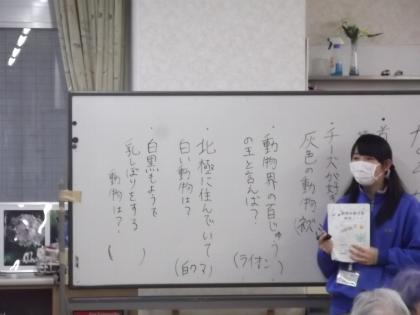 ・チーズが好
灰色の動物
・動物界の百じゅう
の王と言えば?
(ライオン)
・北極に住んでいて
白い動物は?
(白クマ)
・白黒もようで
乳しぼりをする
動物は?
( )